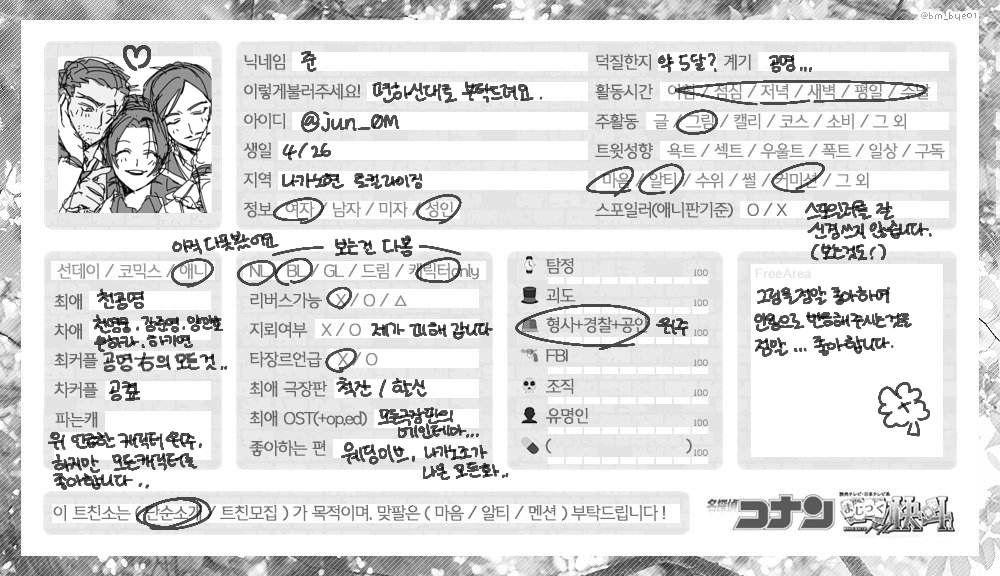 @bm_bye01
닉네임 준
이렇게불러주세요! 편하신대로 부탁드려요.
아이디 @jun_0M
생일 4/26
지역 나가노현 로컬라이징
정보 여자 / 남자 / 미자 / 성인
덕질한지 약 5달? 계기 공명...
활동시간 아침 / 점심 / 저녁 / 새벽 / 평일 / 주말
주활동 글 / 그림 / 캘리 / 코스 / 소비 / 그 외
트윗성향 욕트 / 섹트 / 우울트 / 폭트 / 일상 / 구독
마음 / 알티 / 수위 / 썰 / 커미션 / 그 외
스포일러(애니판기준) O / X 스포일러를 잘
신경쓰지 않습니다.
(보는것도!)
아직 다못봤어요
선데이 / 코믹스 / 애니
최애 천공명
차애
최커플 공명 右의 모든것..
차커플 공
파는캐
위 언급한 캐릭터 위주,
하지만 모든캐릭터를
좋아합니다..
보는건 다봄
NL / BL / GL / 드림 / 캐릭터only
리버스가능 X / O / △
지뢰여부 X / O 제가 피해 갑니다
타장르언급 X / O
최애 극장판 척잔 / 할신
최애 OST(+op,ed) 모든극장판의
메인테마...
좋아하는 편 웨딩이브, 나가노조가
나온 모든화..
탐정 100
괴도 100
형사+경찰+공안 위주 100
FBI 100
조직 100
유명인 100
( ) 100
FreeArea
그림을 정말 좋아하며
만용으로 반응해주시는것을
정말... 좋아합니다.
이 트친소는 ( 단순소개 / 트친모집 ) 가 목적이며, 맞팔은 ( 마음 / 알티 / 멘션 ) 부탁드립니다 !
名探偵
コナン
読売テレビ・日本テレビ系
まじっく快斗